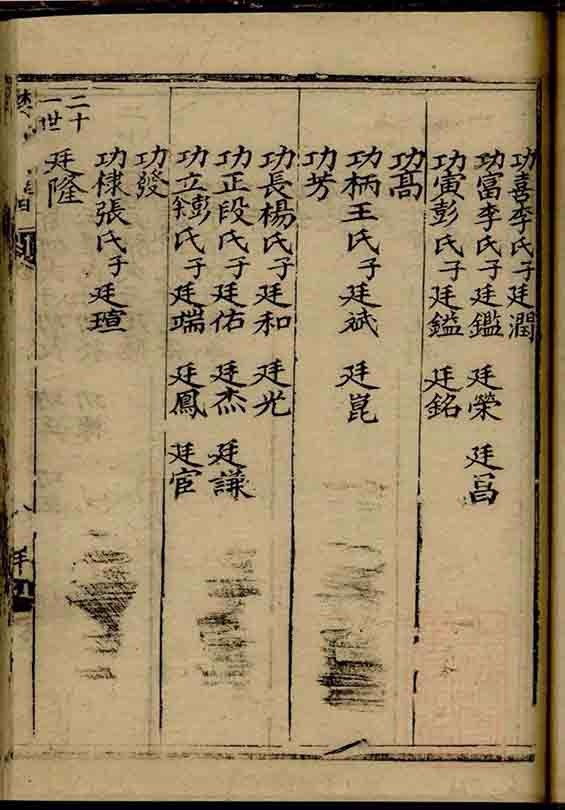 功喜李氏子廷潤
功富李氏子廷鑑 廷榮 廷昌
功寅彭氏子廷鎰 廷銘
功髙
功柄王氏子廷斌 廷崑
功芳
功長楊氏子廷和 廷光
功正段氏子廷佑 廷杰 廷謙
功立彭氏子廷端 廷鳳 廷宦
功發
功棣張氏子廷瑄
二十
一世
廷隆